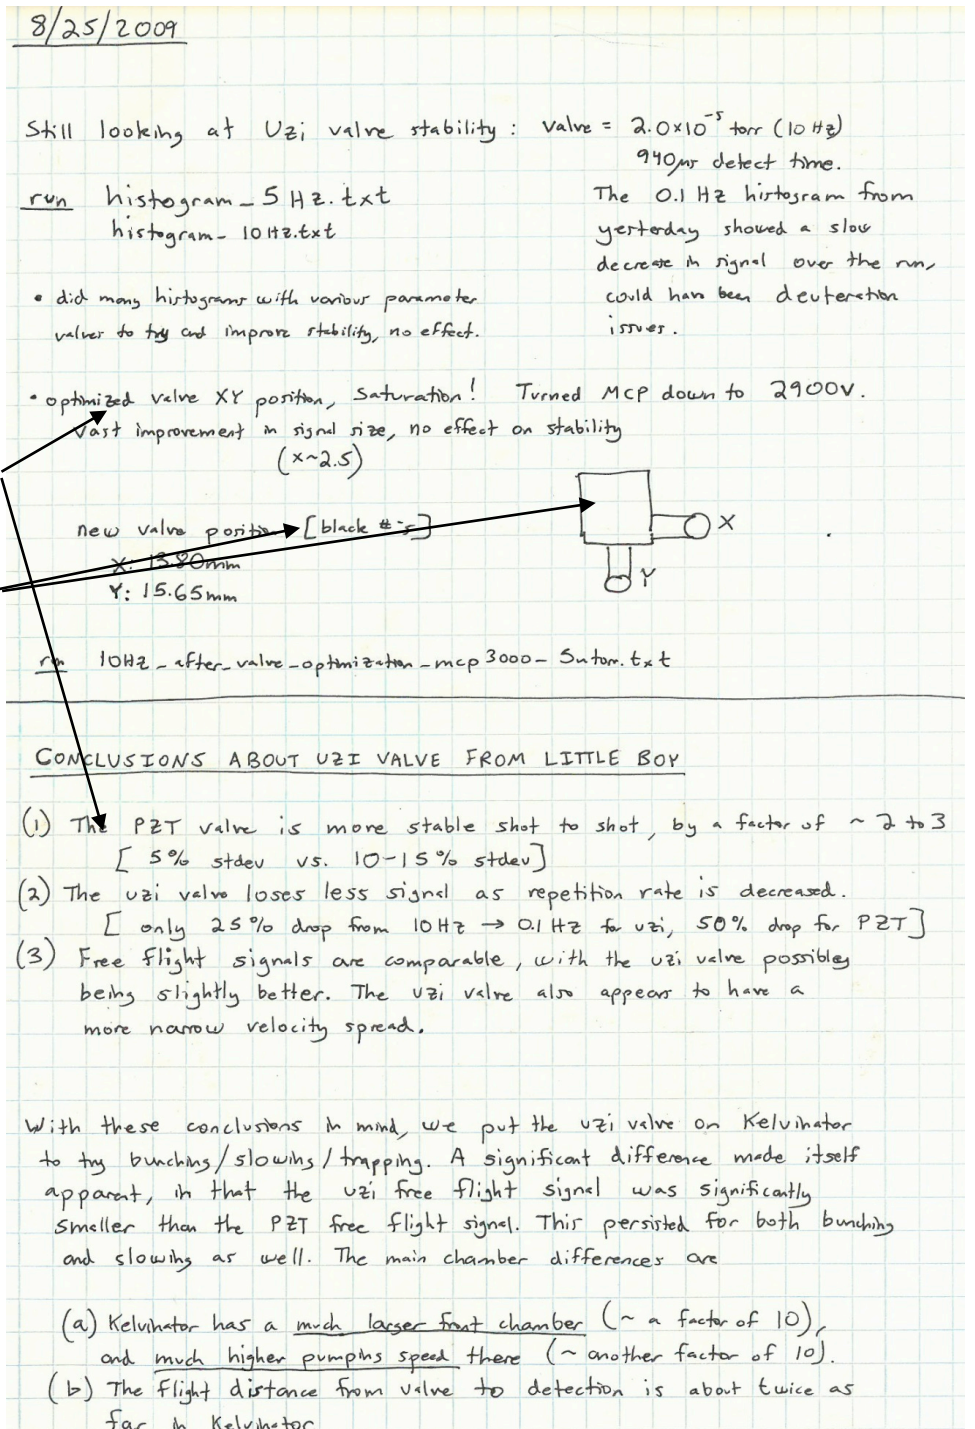 8/25/2009
Still looking at Uzi valve stability : Valve = 2.0x10⁻⁵ torr (10 Hz)
940μs detect time.
run histogram_5 Hz.txt
histogram_10Hz.txt
The 0.1 Hz histogram from
yesterday showed a slow
decrease in signal over the run,
could have been deuteration
issues.
• did many histograms with various parameter
values to try and improve stability, no effect.
• optimized valve XY position, Saturation! Turned MCP down to 2900V.
Vast improvement in signal size, no effect on stability
(x~2.5)
new valve position [black #'s]
X: 13.80mm
Y: 15.65mm
X
Y
run 10Hz_after_valve_optimization_mcp3000_5utorr.txt
CONCLUSIONS ABOUT UZI VALVE FROM LITTLE BOY
(1) The PZT valve is more stable shot to shot, by a factor of ~ 2 to 3
[ 5% stdev vs. 10-15% stdev]
(2) The uzi valve loses less signal as repetition rate is decreased.
[ only 25% drop from 10Hz → 0.1 Hz for uzi, 50% drop for PZT]
(3) Free flight signals are comparable, with the uzi valve possibley
being slightly better. The uzi valve also appears to have a
more narrow velocity spread.
With these conclusions in mind, we put the uzi valve on Kelvinator
to try bunching/slowing/trapping. A significant difference made itself
apparent, in that the uzi free flight signal was significantly
smaller than the PZT free flight signal. This persisted for both bunching
and slowing as well. The main chamber differences are
(a) Kelvinator has a much larger front chamber (~ a factor of 10),
and much higher pumping speed there (~ another factor of 10).
(b) The flight distance from valve to detection is about twice as
far in Kelvinator